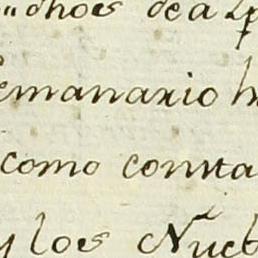 dhos de a
emanario
como consta
y los Nueb